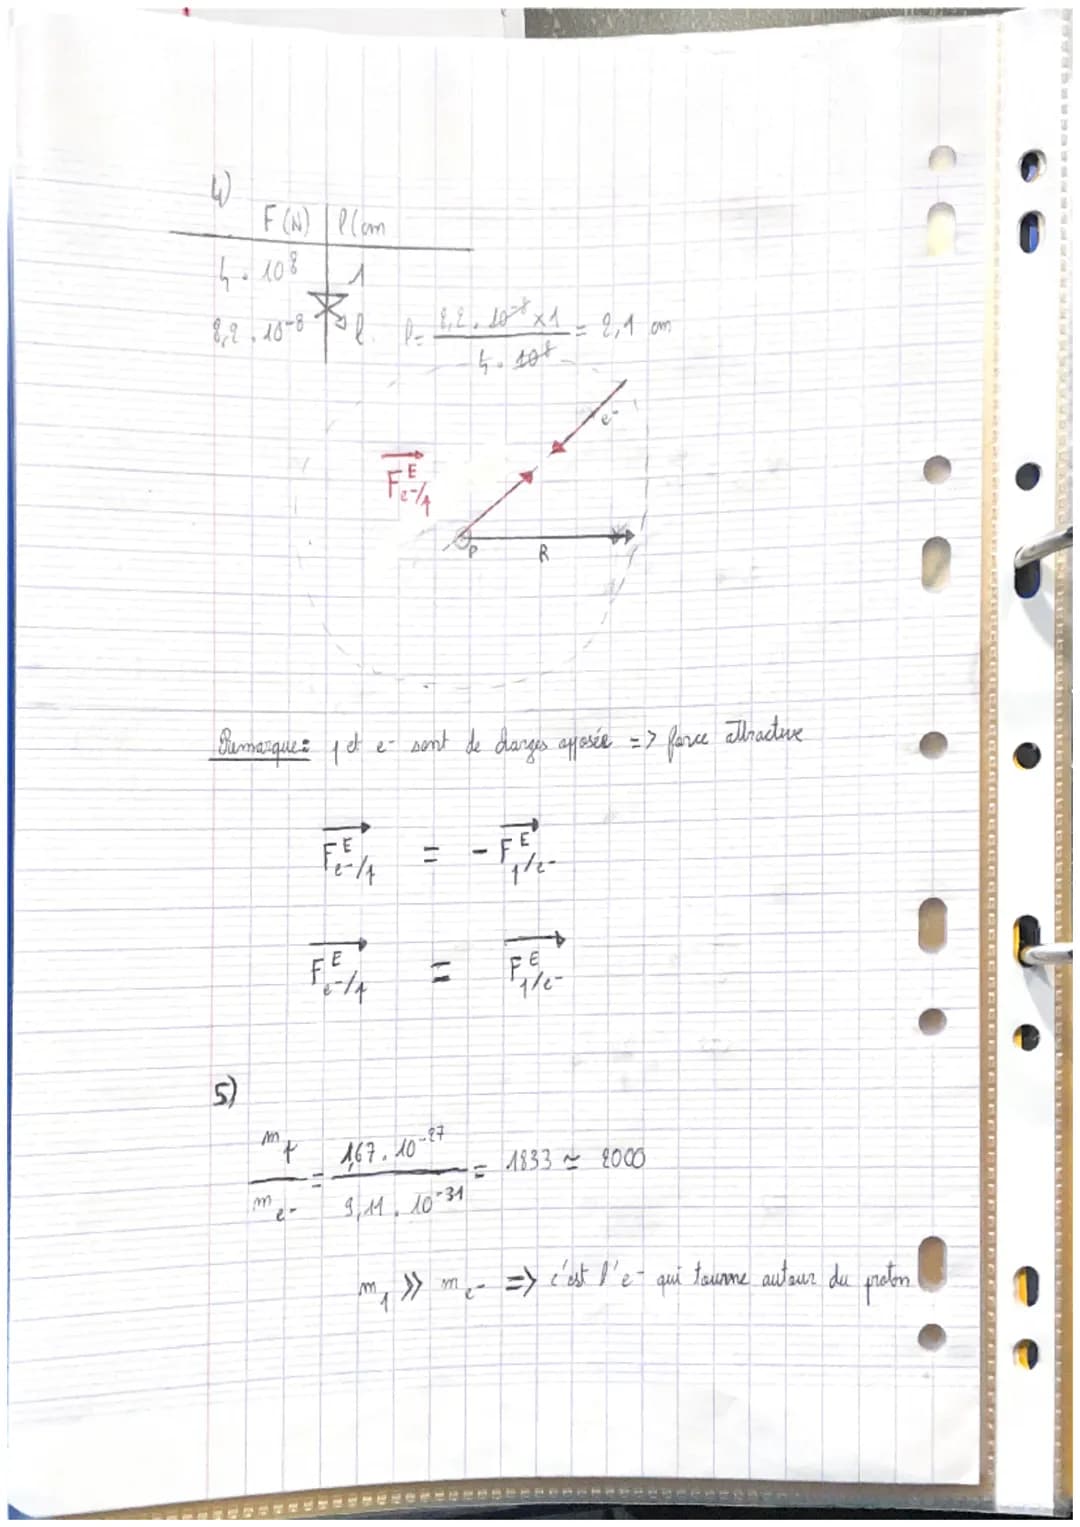 4)
F (N) | l (cm
4 . 10⁸ | 1
8,2 . 10⁻⁸ | l. l = 8,2 . 10⁻⁸ x 1 / 4 . 10⁸ = 2,1 cm
e⁻
F^E e⁻/p
P R
Remarque : p et e⁻ sont de charges opposée => force attractive
F^E e⁻/p = - F^E p/e⁻
F^E e⁻/p = F^E p/e⁻
5)
m p / m e⁻ = 1,67 . 10⁻²⁷ / 9,11 . 10⁻³¹ = 1833 ≃ 2000
m p >> m e⁻ => c'est l'e⁻ qui tourne autour du proton